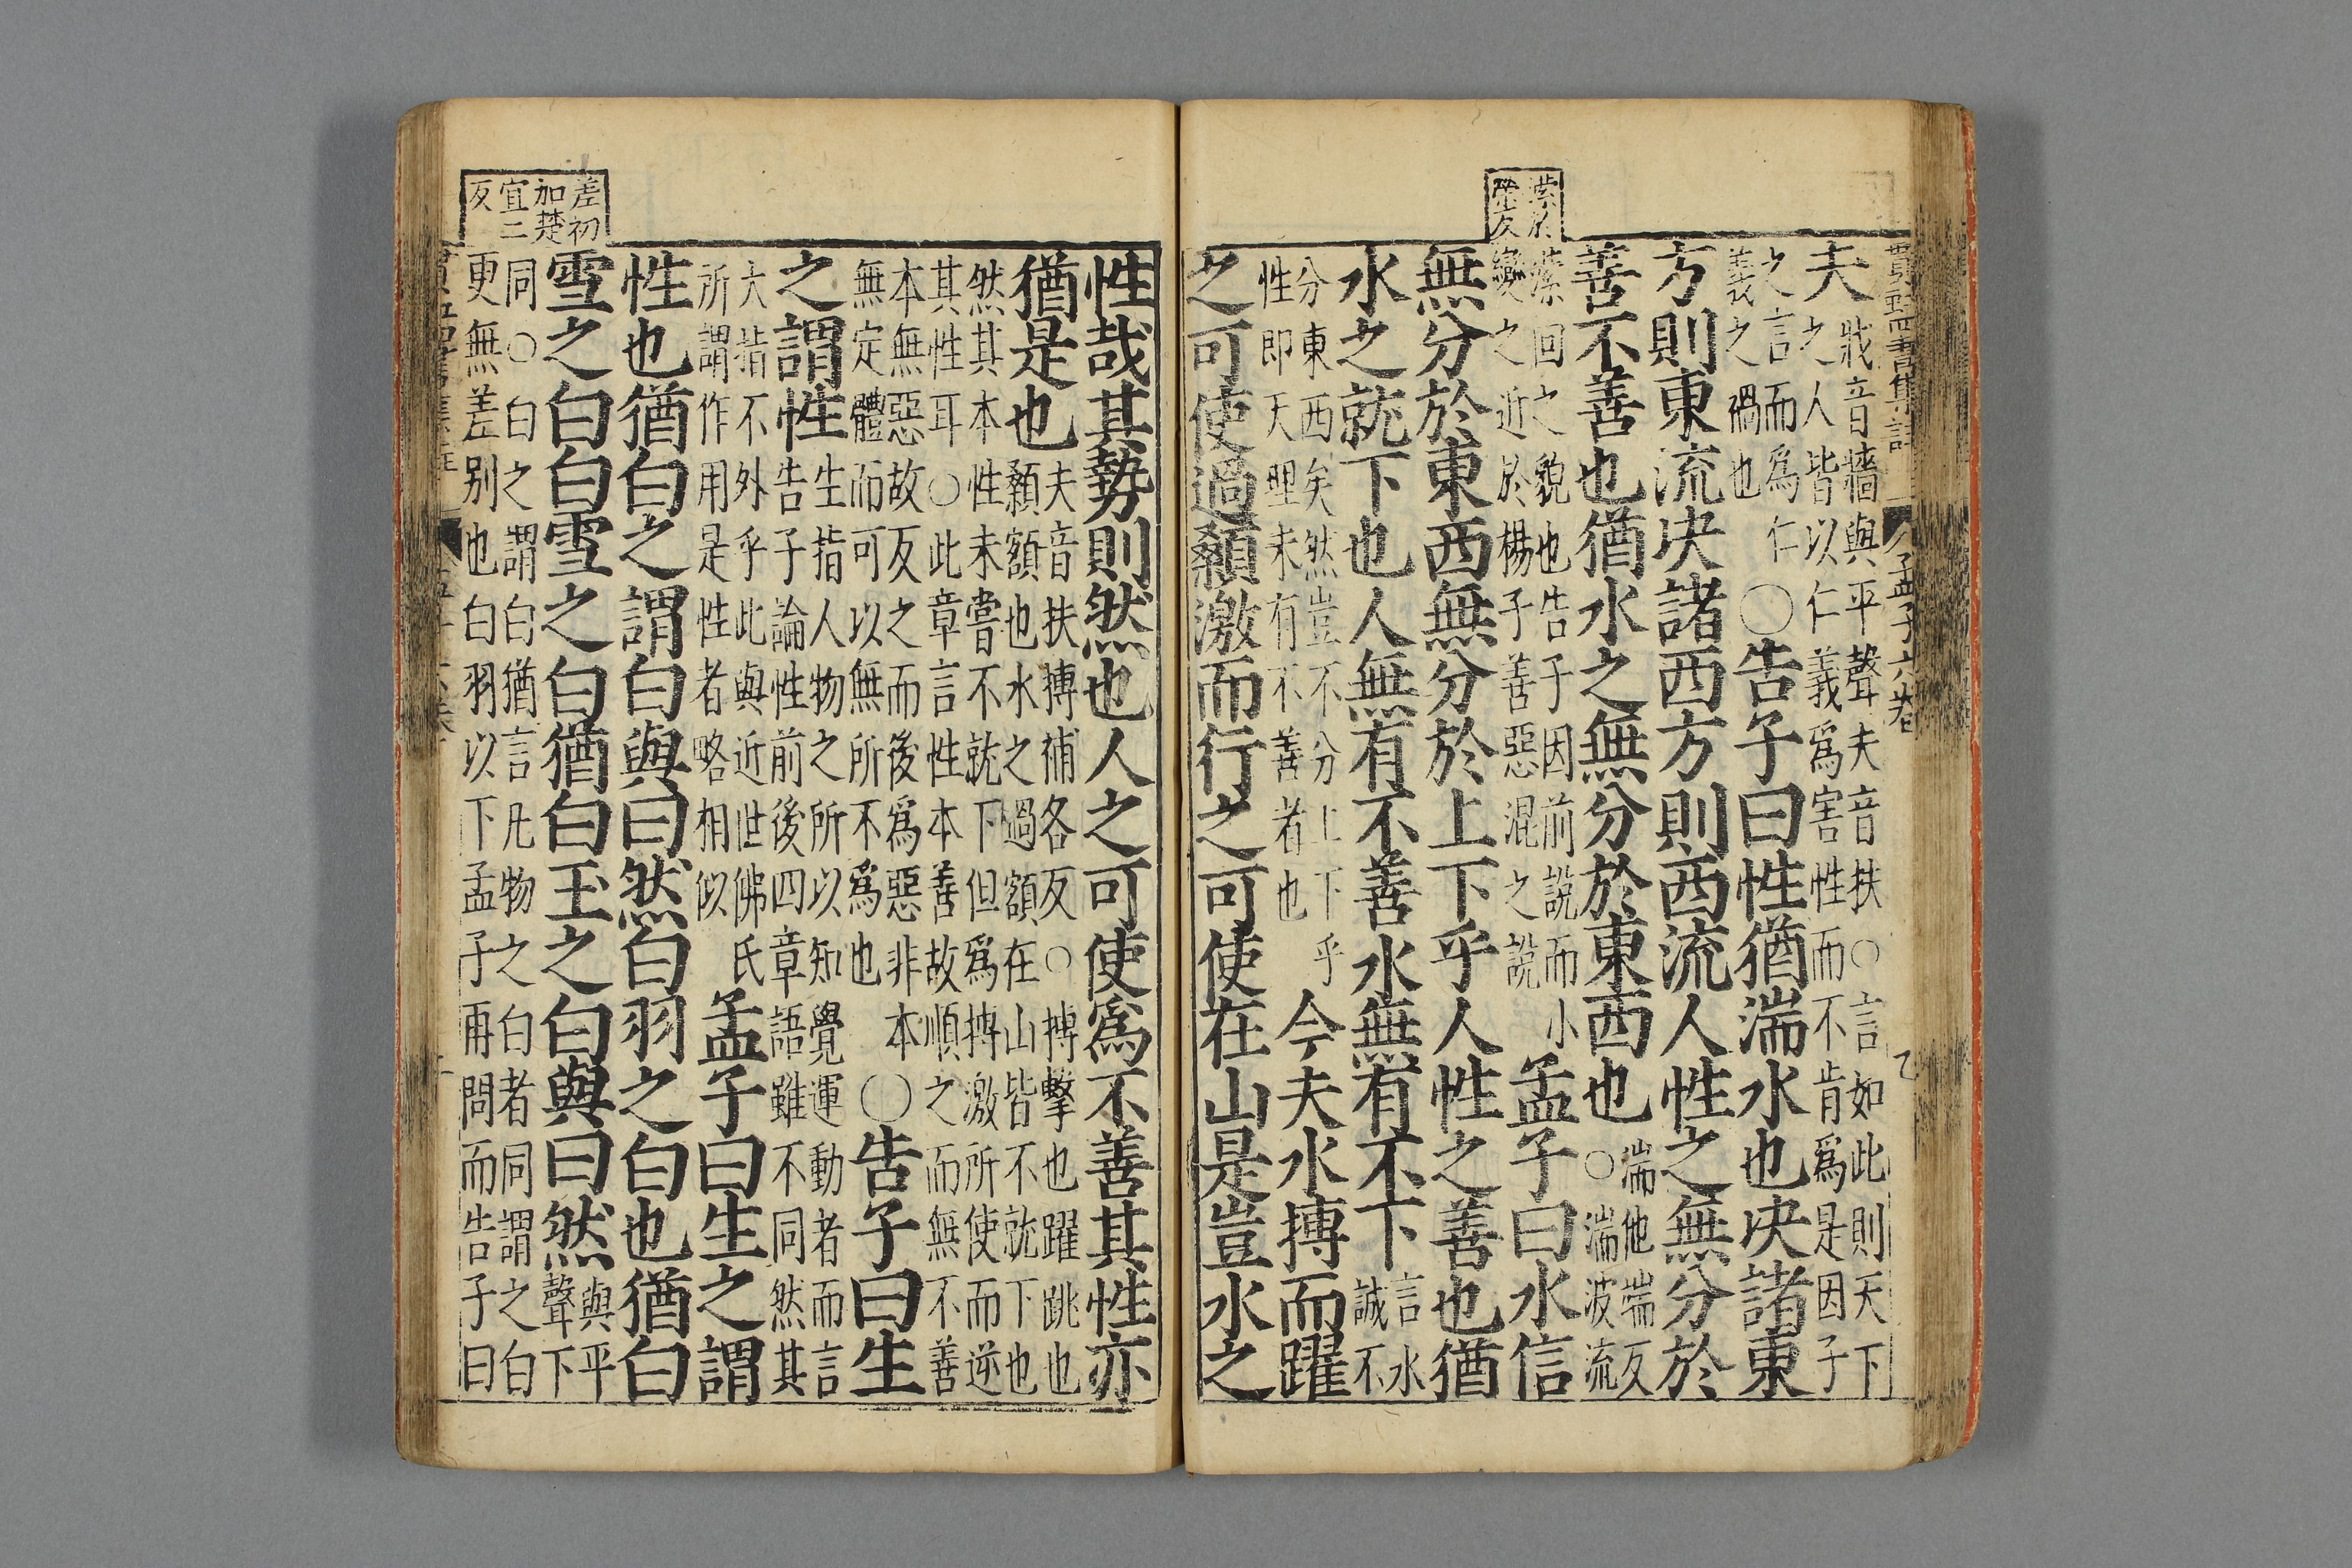 孟子六卷
縈於
營反
夫
戕音牆與平聲夫音扶○言如此則天下
之人皆以仁義爲害性而不肯爲是因子
之言而爲仁
義之禍也
○告子曰性猶湍水也决諸東
方則東流决諸西方則西流人性之無分於
善不善也猶水之無分於東西也
湍他端反
○湍波流
縈回之貌也告子因前說而小
變之近於楊子善惡混之說
孟子曰水信
無分於東西無分於上下乎人性之善也猶
水之就下也人無有不善水無有不下
言水
誠不
分東西矣然豈不分上下乎
性即天理未有不善者也
今夫水搏而躍
之可使過顙激而行之可使在山是豈水之
性哉其勢則然也人之可使爲不善其性亦
猶是也
夫音扶搏補各反○搏擊也躍跳也
顙額也水之過額在山皆不就下也
然其本性未嘗不就下但爲搏激所使而逆
其性耳○此章言性本善故順之而無不善
本無惡故反之而後爲惡非本
無定體而可以無所不爲也
○告子曰生
之謂性
生指人物之所以知覺運動者而言
告子論性前後四章語雖不同然其
大指不外乎此與近世佛氏
所謂作用是性者略相似
孟子曰生之謂
性也猶白之謂白與曰然白羽之白也猶白
雪之白白雪之白猶白玉之白與曰然
與平
聲下
差初
加楚
宜二
反
同○白之謂白猶言凡物之白者同謂之白
更無差别也白羽以下孟子再問而告子曰